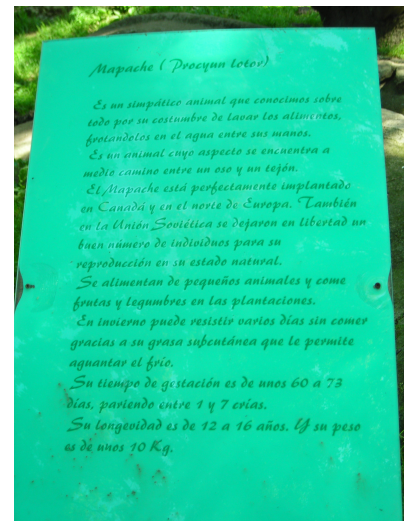 Mapache ( Procyun lotor)
Es un simpático animal que conocimos sobre
todo por su costumbre de lavar los alimentos,
frotandolos en el agua entre sus manos.
Es un animal cuyo aspecto se encuentra a
medio camino entre un oso y un tejón.
El Mapache está perfectamente implantado
en Canadá y en el norte de Europa. También
en la Unión Soviética se dejaron en libertad un
buen número de individuos para su
reproducción en su estado natural.
Se alimentan de pequeños animales y come
frutas y legumbres en las plantaciones.
En invierno puede resistir varios días sin comer
gracias a su grasa subcutánea que le permite
aguantar el frío.
Su tiempo de gestación es de unos 60 a 73
días, pariendo entre 1 y 7 crías.
Su longevidad es de 12 a 16 años. Y su peso
es de unos 10 Kg.